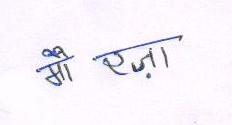 मो रज़ा